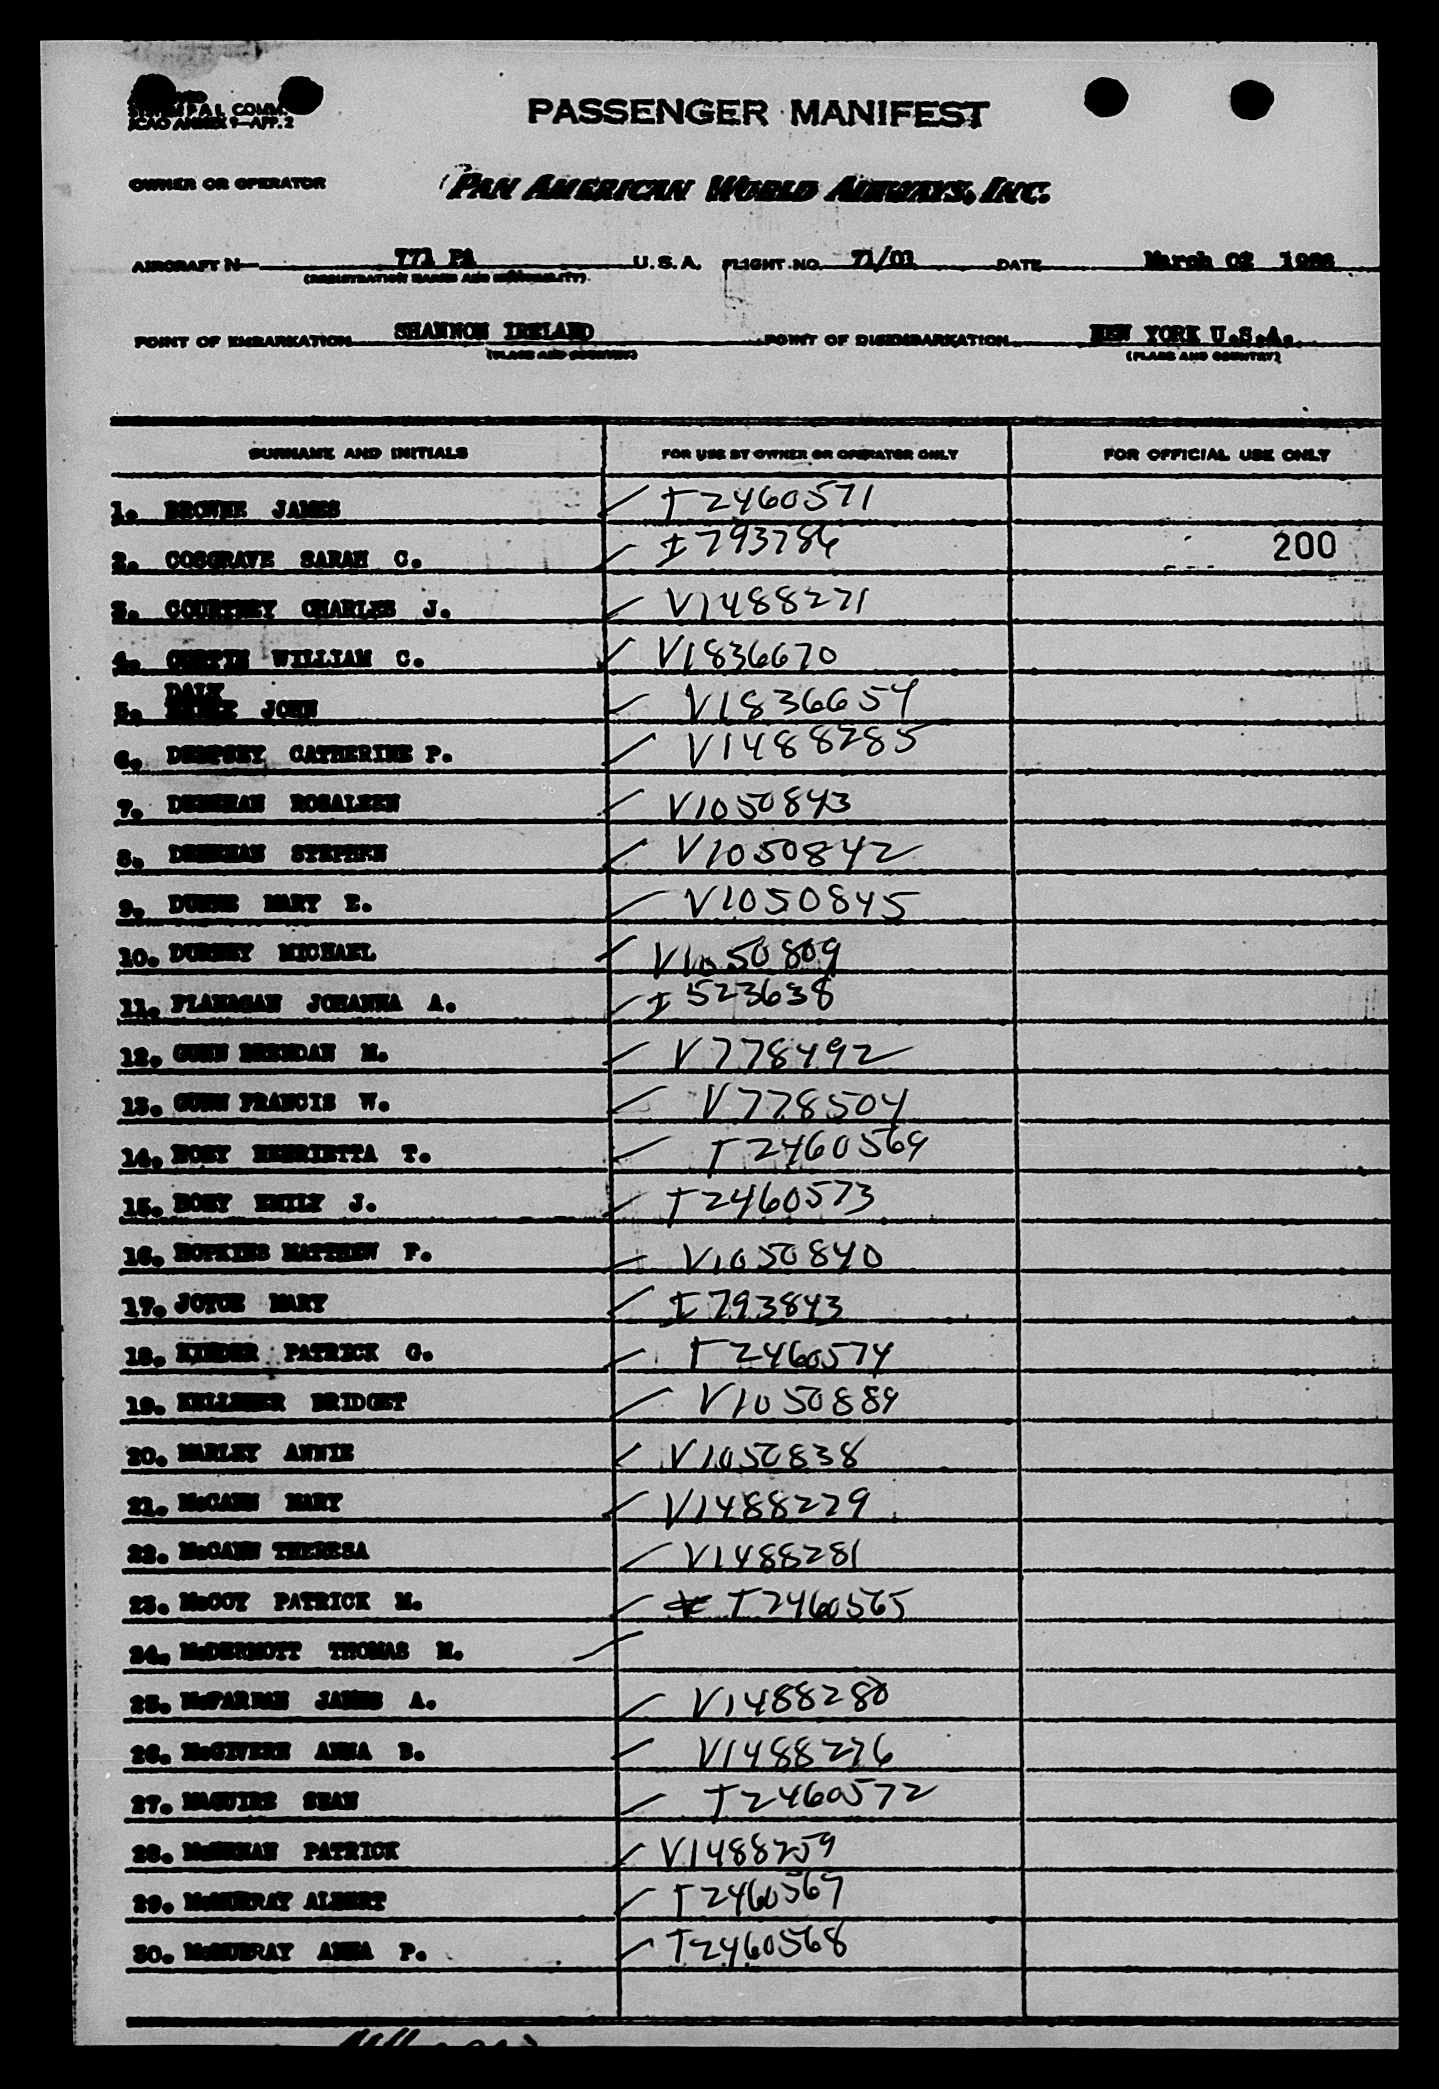 PASSENGER MANIFEST
ICAO ANNEX 9—APP. 2
OWNER OR OPERATOR
PAN AMERICAN WORLD AIRWAYS, INC.
AIRCRAFT N— 771 PA U.S.A. FLIGHT NO. 71/01 DATE March 02
(REGISTRATION MARKS AND NATIONALITY)
POINT OF EMBARKATION SHANNON IRELAND POINT OF DISEMBARKATION NEW YORK U.S.A.
(PLACE AND COUNTRY) (PLACE AND COUNTRY)
SURNAME AND INITIALS FOR USE BY OWNER OR OPERATOR ONLY FOR OFFICIAL USE ONLY
1. BROWNE JAMES T2460571
2. COSGRAVE SARAH C. I793786 200
3. COURTNEY CHARLES J. V1488271
4. CURTIN WILLIAM C. V1836670
5. DALY JOHN V1836657
6. DEMPSEY CATHERINE P. V1488285
7. DEENEHAN ROSALEEN V1050843
8. DEENEHAN STEPHEN V1050842
9. DUNNE MARY E. V1050845
10. DURNEY MICHAEL V1050809
11. FLANAGAN JOHANNA A. I523638
12. GUNN BRENDAN M. V778492
13. GUNN FRANCIS W. V778504
14. HOEY HENRIETTA T. T2460569
15. HOEY EMILY J. T2460573
16. HOPKINS MATTHEW P. V1050840
17. JOYCE MARY I793843
18. KINDER PATRICK G. T2460574
19. KELLEHER BRIDGET V1050889
20. MARLEY ANNIE V1050838
21. McCANN MARY V1488279
22. McCANN THERESA V1488281
23. McCOY PATRICK M. T2460565
24. McDERMOTT THOMAS M.
25. McPARLAN JAMES A. V1488280
26. McGIVERN ANNA B. V1488276
27. MAGUIRE SEAN T2460572
28. PATRICK V1488259
29. McMURRAY ALBERT T2460567
30. McMURRAY ANNA P. T2460568